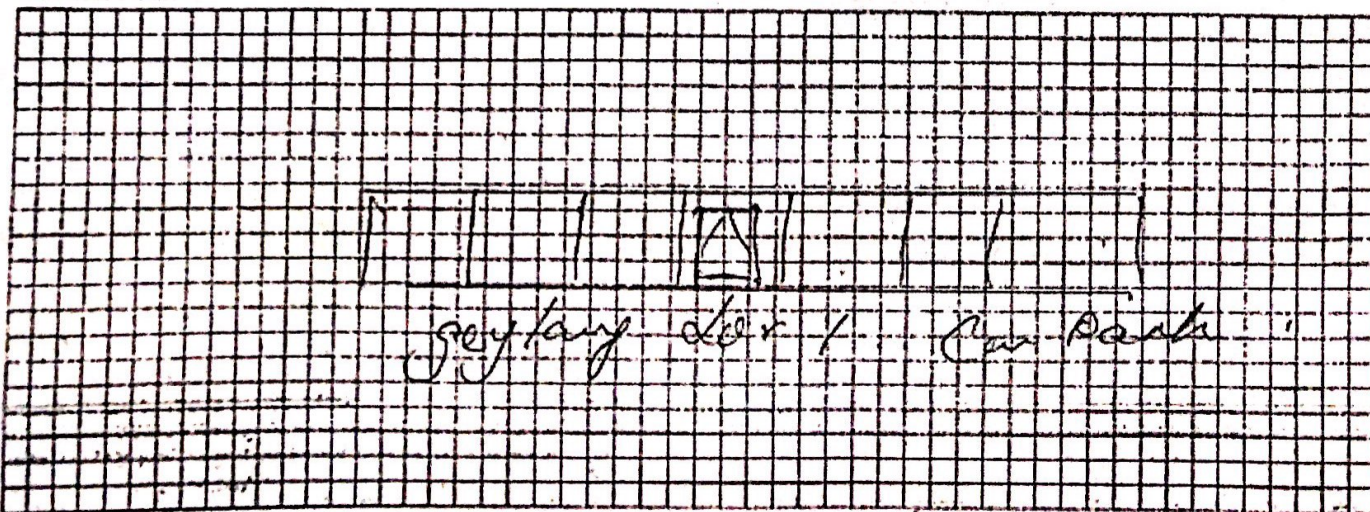 geylang Lor 1 Car Park